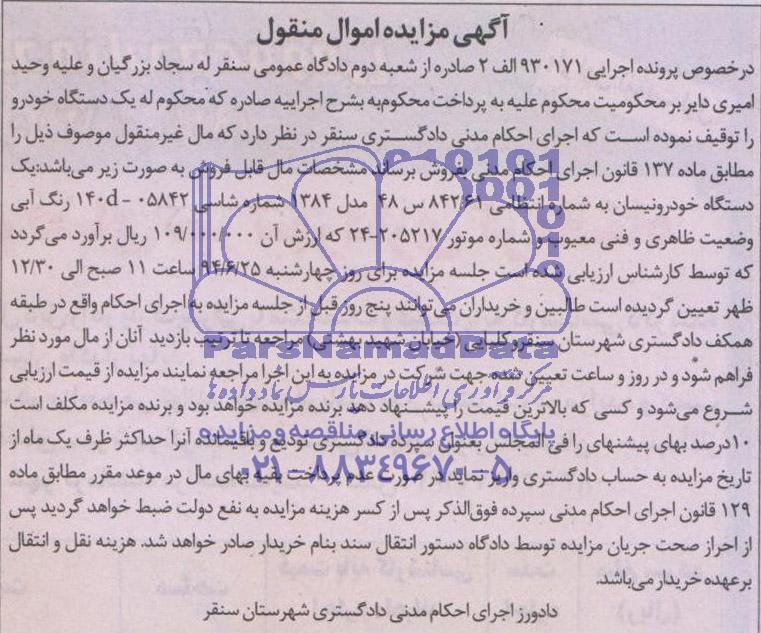 آگهی مزایده اموال منقول
درخصوص پرونده اجرایی ۹۳۰۱۷۱ الف ۲ صادره از شعبه دوم دادگاه عمومی سنقر له سجاد بزرگیان و علیه وحید
امیری دایر بر محکومیت محکوم علیه به پرداخت محکوم‌به بشرح اجراییه صادره که محکوم له یک دستگاه خودرو
را توقیف نموده است که اجرای احکام مدنی دادگستری سنقر در نظر دارد که مال غیرمنقول موصوف ذیل را
مطابق ماده ۱۳۷ قانون اجرای احکام مدنی بفروش برساند مشخصات مال قابل فروش به صورت زیر می‌باشد:یک
دستگاه خودرونیسان به شماره انتظامی ۸۴۲/۶۱ س ۴۸ مدل ۱۳۸۴ شماره شاسی ۰۵۸۴۲ - ۱۴۰d رنگ آبی
وضعیت ظاهری و فنی معیوب و شماره موتور ۲۰۵۲۱۷-۲۴ که ارزش آن ۱۰۹/۰۰۰/۰۰۰ ریال برآورد می‌گردد
که توسط کارشناس ارزیابی شده است جلسه مزایده برای روز چهارشنبه ۹۴/۶/۲۵ ساعت ۱۱ صبح الی ۱۲/۳۰
ظهر تعیین گردیده است طالبین و خریداران می‌توانند پنج روز قبل از جلسه مزایده به اجرای احکام واقع در طبقه
همکف دادگستری شهرستان سنقروکلیایی (خیابان شهید بهشتی) مراجعه تا ترتیب بازدید آنان از مال مورد نظر
فراهم شود و در روز و ساعت تعیین شده جهت شرکت در مزایده به این اجرا مراجعه نمایند مزایده از قیمت ارزیابی
شروع می‌شود و کسی که بالاترین قیمت را پیشنهاد دهد برنده مزایده خواهد بود و برنده مزایده مکلف است
۱۰درصد بهای پیشنهای را فی المجلس بعنوان سپرده دادگستری تودیع و باقیمانده آنرا حداکثر ظرف یک ماه از
تاریخ مزایده به حساب دادگستری واریز نماید در صورت عدم پرداخت بقیه بهای مال در موعد مقرر مطابق ماده
۱۲۹ قانون اجرای احکام مدنی سپرده فوق‌الذکر پس از کسر هزینه مزایده به نفع دولت ضبط خواهد گردید پس
از احراز صحت جریان مزایده توسط دادگاه دستور انتقال سند بنام خریدار صادر خواهد شد. هزینه نقل و انتقال
برعهده خریدار می‌باشد.
دادورز اجرای احکام مدنی دادگستری شهرستان سنقر
ParsNamadData
مرکز فرآوری اطلاعات پارس نماد داده‌ها
پایگاه اطلاع رسانی مناقصه و مزایده
۰۲۱-۸۸۳۴۹۶۷۰-۵